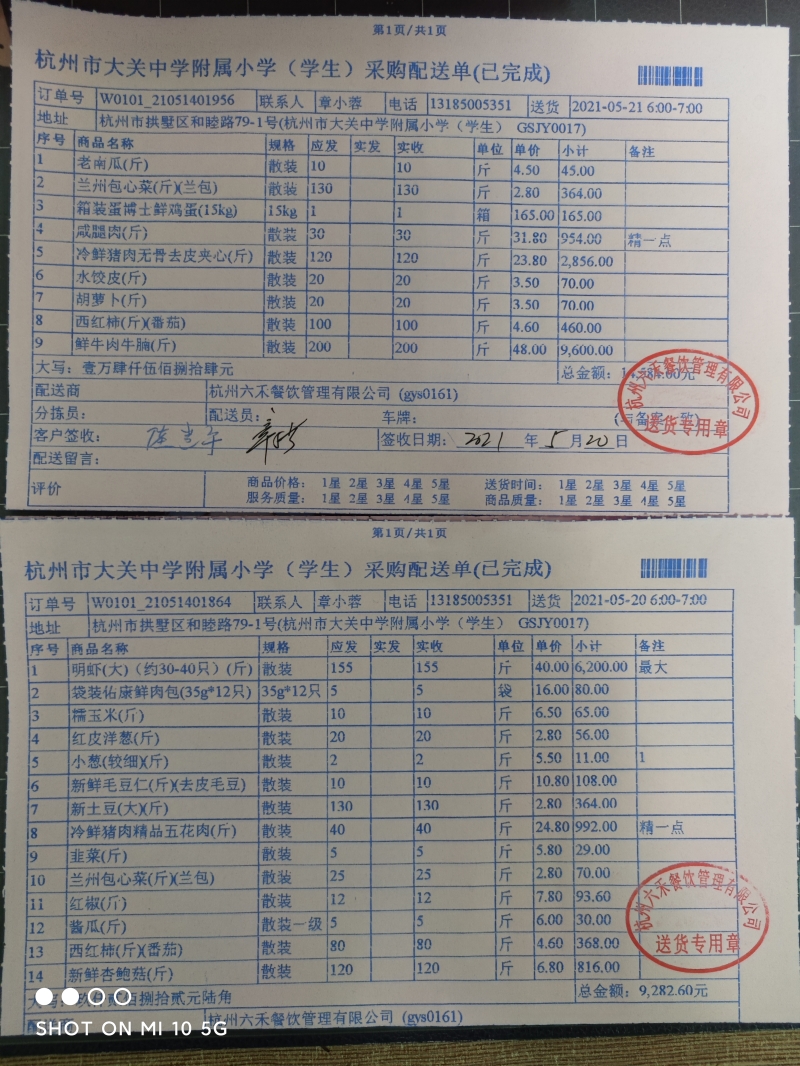 第1页/共1页
杭州市大关中学附属小学（学生）采购配送单(已完成)
订单号 W0101_21051401956 联系人 章小蓉 电话 13185005351 送货 2021-05-21 6:00-7:00
地址 杭州市拱墅区和睦路79-1号(杭州市大关中学附属小学（学生） GSJY0017)
序号 商品名称 规格 应发 实发 实收 单位 单价 小计 备注
1 老南瓜(斤) 散装 10 10 斤 4.50 45.00
2 兰州包心菜(斤)(兰包) 散装 130 130 斤 2.80 364.00
3 箱装蛋博士鲜鸡蛋(15kg) 15kg 1 1 箱 165.00 165.00
4 咸腿肉(斤) 散装 30 30 斤 31.80 954.00 精一点
5 冷鲜猪肉无骨去皮夹心(斤) 散装 120 120 斤 23.80 2,856.00
6 水饺皮(斤) 散装 20 20 斤 3.50 70.00
7 胡萝卜(斤) 散装 20 20 斤 3.50 70.00
8 西红柿(斤)(番茄) 散装 100 100 斤 4.60 460.00
9 鲜牛肉牛腩(斤) 散装 200 200 斤 48.00 9,600.00
大写：壹万肆仟伍佰捌拾肆元 总金额：14,584.00元
配送商 杭州六禾餐饮管理有限公司 (gys0161)
分拣员： 配送员： 车牌： (与备案一致)
客户签收： 签收日期：2021 年 5 月 20 日
配送留言：
评价 商品价格： 1星 2星 3星 4星 5星 送货时间： 1星 2星 3星 4星 5星
服务质量： 1星 2星 3星 4星 5星 商品质量： 1星 2星 3星 4星 5星
杭州六禾餐饮管理有限公司
送货专用章
第1页/共1页
杭州市大关中学附属小学（学生）采购配送单(已完成)
订单号 W0101_21051401864 联系人 章小蓉 电话 13185005351 送货 2021-05-20 6:00-7:00
地址 杭州市拱墅区和睦路79-1号(杭州市大关中学附属小学（学生） GSJY0017)
序号 商品名称 规格 应发 实发 实收 单位 单价 小计 备注
1 明虾(大)（约30-40只）(斤) 散装 155 155 斤 40.00 6,200.00 最大
2 袋装佑康鲜肉包(35g*12只) 35g*12只 5 5 袋 16.00 80.00
3 糯玉米(斤) 散装 10 10 斤 6.50 65.00
4 红皮洋葱(斤) 散装 20 20 斤 2.80 56.00
5 小葱(较细)(斤) 散装 2 2 斤 5.50 11.00 1
6 新鲜毛豆仁(斤)(去皮毛豆) 散装 10 10 斤 10.80 108.00
7 新土豆(大)(斤) 散装 130 130 斤 2.80 364.00
8 冷鲜猪肉精品五花肉(斤) 散装 40 40 斤 24.80 992.00 精一点
9 韭菜(斤) 散装 5 5 斤 5.80 29.00
10 兰州包心菜(斤)(兰包) 散装 25 25 斤 2.80 70.00
11 红椒(斤) 散装 12 12 斤 7.80 93.60
12 酱瓜(斤) 散装一级 5 5 斤 6.00 30.00
13 西红柿(斤)(番茄) 散装 80 80 斤 4.60 368.00
14 新鲜杏鲍菇(斤) 散装 120 120 斤 6.80 816.00
大写：玖仟贰佰捌拾贰元陆角 总金额：9,282.60元
配送商 杭州六禾餐饮管理有限公司 (gys0161)
杭州六禾餐饮管理有限公司
送货专用章
SHOT ON MI 10 5G